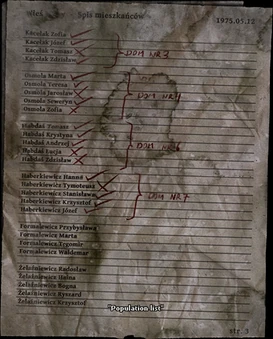 Wieś
Spis mieszkańców
1975.05.12
Kacelak Zofia
Kacelak Józef
Kacelak Tomasz
Kacelak Zdzisław
DOM NR 2
Osmoła Marta
Osmoła Teresa
Osmoła Jarosław
Osmoła Seweryn
Osmoła Zofia
DOM NR 4
Habdaś Tomasz
Habdaś Krystyna
Habdaś Andrzej
Habdaś Łucja
Habdaś Zdzisław
DOM NR 6
Haberkiewicz Hanna
Haberkiewicz Tymoteusz
Haberkiewicz Stanisława
Haberkiewicz Krzysztof
Haberkiewicz Józef
DOM NR 7
Formalewicz Przybysława
Formalewicz Marta
Formalewicz Trzomir
Formalewicz Waldemar
Żełaźniewicz Radosław
Żełaźniewicz Halna
Żełaźniewicz Bogna
Żełaźniewicz Ryszard
Żełaźniewicz Krzysztof
"Population list"
str. 3